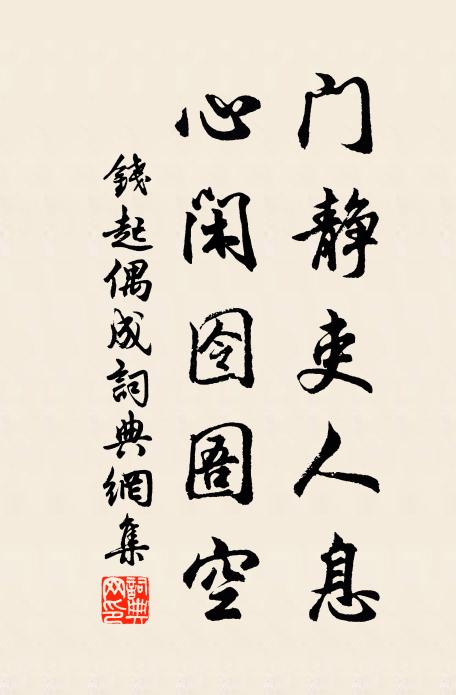 门静吏人息
心闲囹圄空
錢起偶成詞典網集
詞典网印